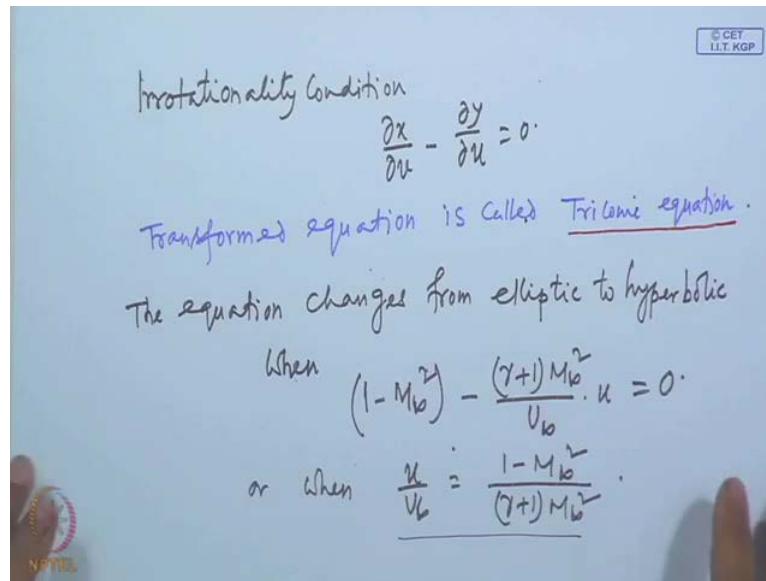 © CET
I.I.T. KGP
Irrotationality Condition
∂x/∂v - ∂y/∂u = 0.
Transformed equation is called Tricomi equation.
The equation changes from elliptic to hyperbolic
when (1 - M∞²) - (γ+1) M∞²/U∞ . u = 0.
or when u/U∞ = 1 - M∞²/(γ+1) M∞² .
NPTEL